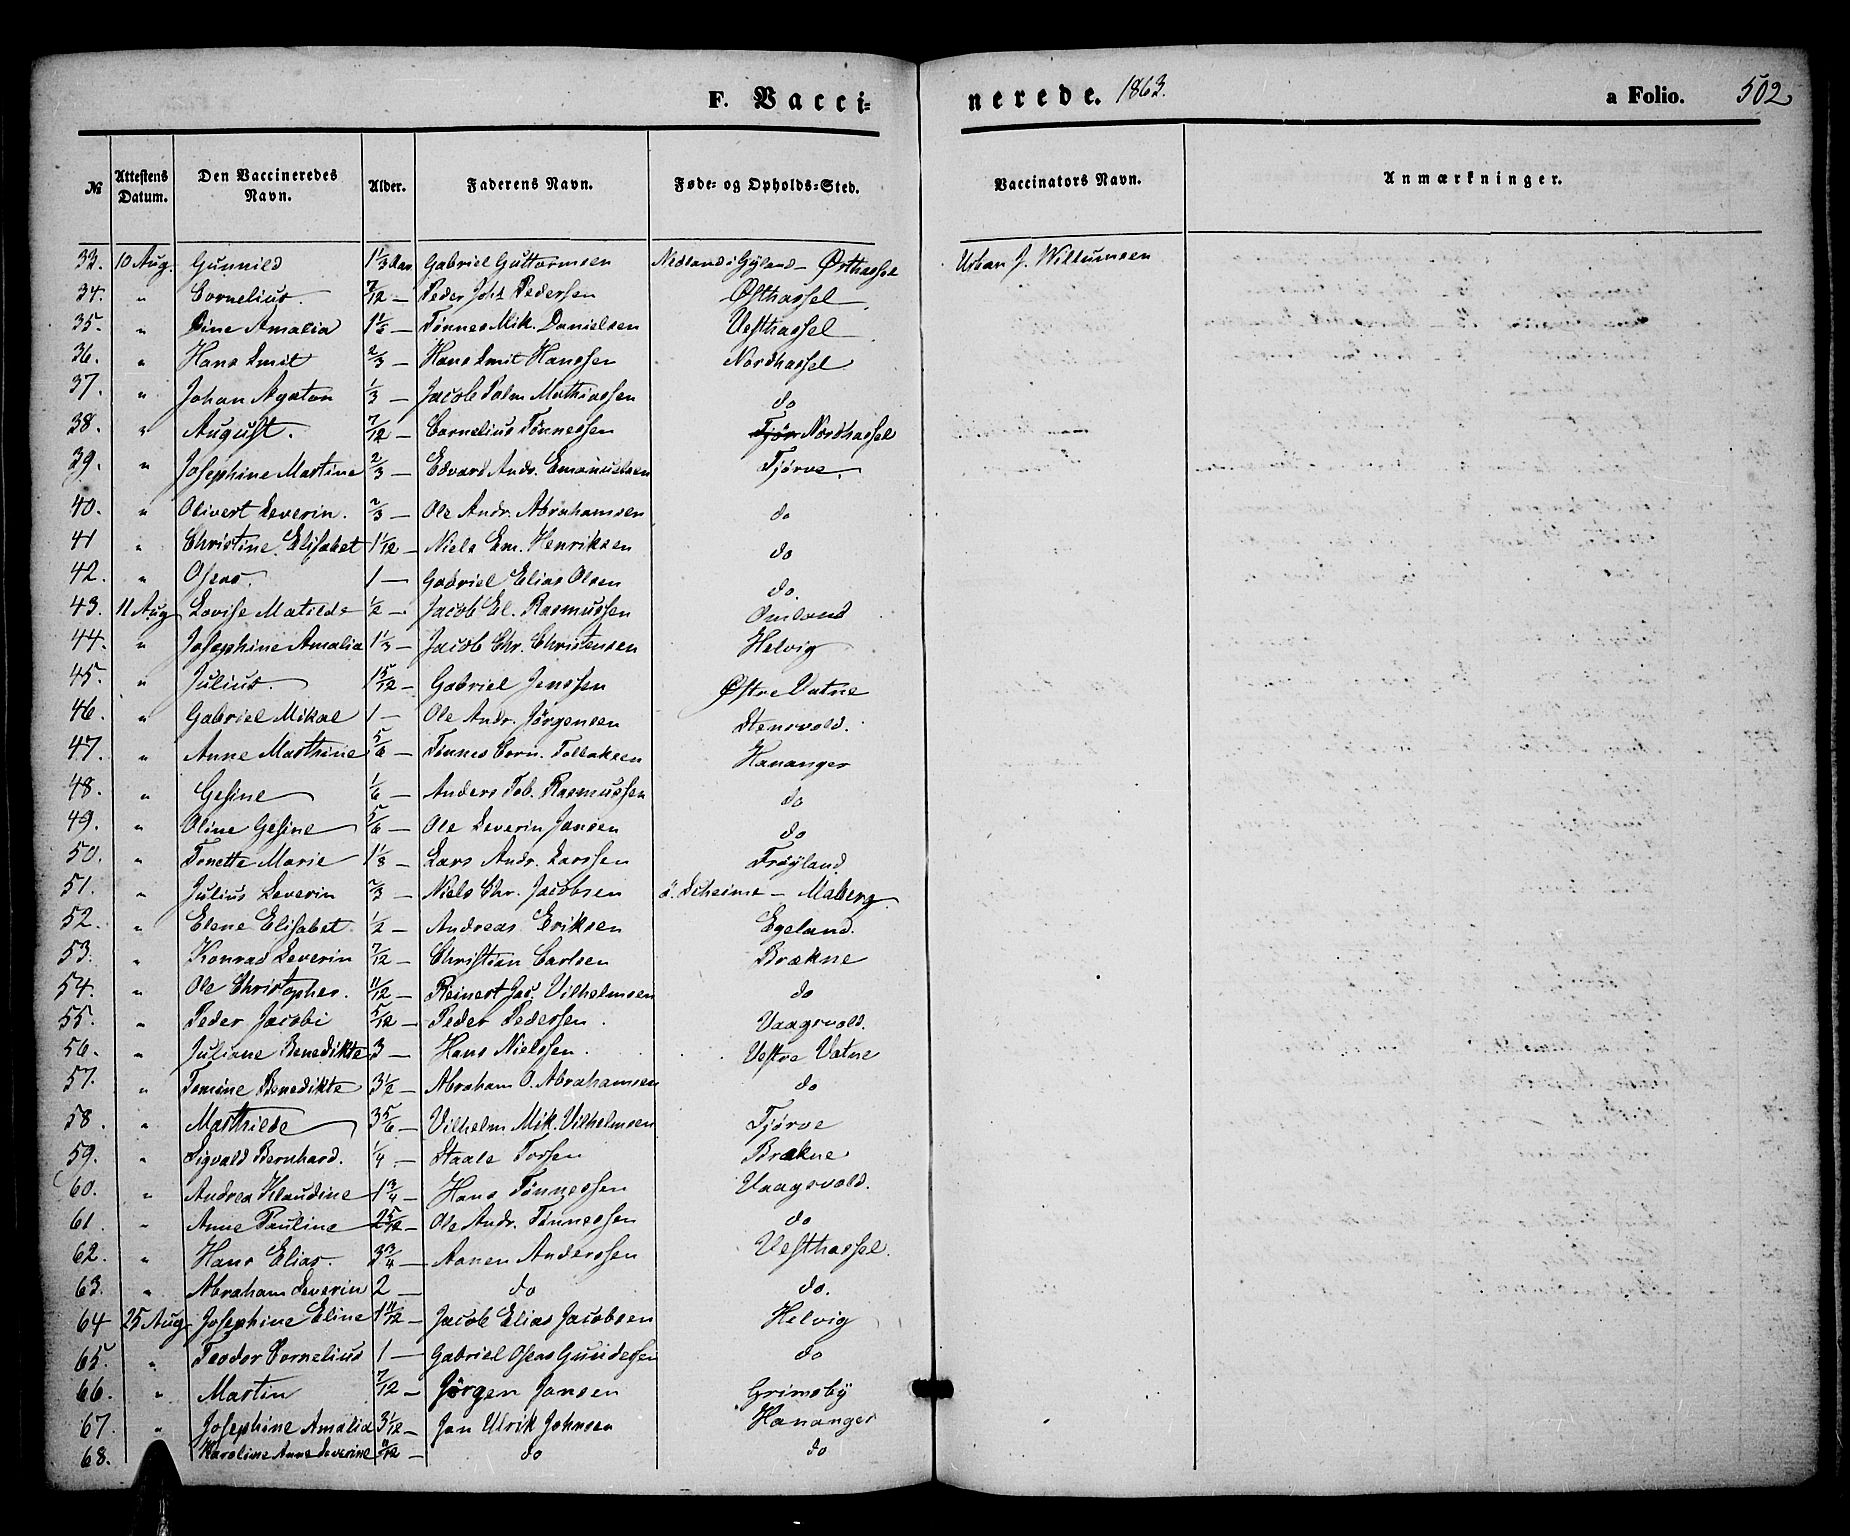 F. Vacci- nerede. 1863. a Folio. 502
No Attestens Datum. Den Vaccineredes Navn. Alder. Faderens Navn. Føde- og Opholds-Sted. Vaccinators Navn. Anmærkninger.
33. 10 Aug. Gunnild 1 1/3 Aar Gabriel Guttormsen Nedland i Gyland — Østhassel Urban J. Willumsen
34. " Cornelius. 7/12 — Peder Joh Pedersen Østhassel
35. " Sine Amalia 1 1/3 — Tønnes Mik. Danielsen Vesthassel
36. " Hans Smit 2/3 — Hans Smit Hanssen Nordhassel
37. " Johan Agaton 1/3 — Jacob Palm Mathiassen do
38. " August. 7/12 — Cornelius Tønnessen Tjör Nordhassel
39. " Josephine Martine 2/3 — Edvard Andr. Emanuelsen Tjörve
40. " Olivert Severin. 2/3 — Ole Andr. Abrahamsen do
41 " Christine Elisabet 1 1/12 — Niels Em. Henriksen do
42. " Oseas. 1 — Gabriel Elias Olsen do.
43. 11 Aug Lovise Matilde 1/2 — Jacob El. Rasmussen Omland
44. " Josephine Amalia 1 1/3 — Jacob Chr. Christensen Helvig
45. " Julius. 1 5/12 — Gabriel Jenssen Østre Vatne
46. " Gabriel Mikal 1 — Ole Andr. Jørgensen Stensvold.
47. " Anne Marthine 5/6 — Tønnes Corn. Tollaksen Hananger
48. " Gesine 1/6 — Anders Tob. Rasmussen do
49. " Oline Gesine 5/6 — Ole Severin Jansen do
50. " Tonette Marie 1 1/3 — Lars Andr. Larssen Frøyland.
51. " Julius Severin 2/3 — Niels Chr. Jacobsen Maberg
52. " Elene Elisabet. 1/2 — Andreas Eriksen Egeland.
53. " Konrad Severin 7/12 — Christian Carlsen Brækne
54. " Ole Christopher. 11/12 — Reinert Jac. Vilhelmsen do
55. " Peder Jacobi 5/12 — Peder Pedersen. Vaagsvold.
56. " Juliane Benedikte 3 — Hans Nielssen. Vestre Vatne
57. " Tomine Benedikte 3 1/2 — Abraham O. Abrahamsen do
58. " Marthilde 3 5/6 — Vilhelm Mik. Vilhelmsen Tjörve
59. " Sigvald Bernhard. 1/4 — Staale Torsen Brækne
60. " Andrea Klaudine 1 3/4 — Hans Tønnessen Vaagsvold.
61. " Anne Pauline 2 5/12 — Ole Andr. Tønnessen do
62. " Hans Elias. 3 3/4 — Aanen Anderssen Vesthassel.
63. " Abraham Severin 2 — do do.
64 25 Aug. Josephine Eline 1 11/12 — Jacob Elias Jacobsen Helvig
65. " Teodor Cornelius 1 — Gabriel Oseas Gundersen do
66. " Martin 7/12 — Jörgen Jansen Grimsby
67. " Josephine Amalia 3 1/12 — Jan Ulrik Johnsen Hananger
68. Karoline Anne Severine 8/12 — do do